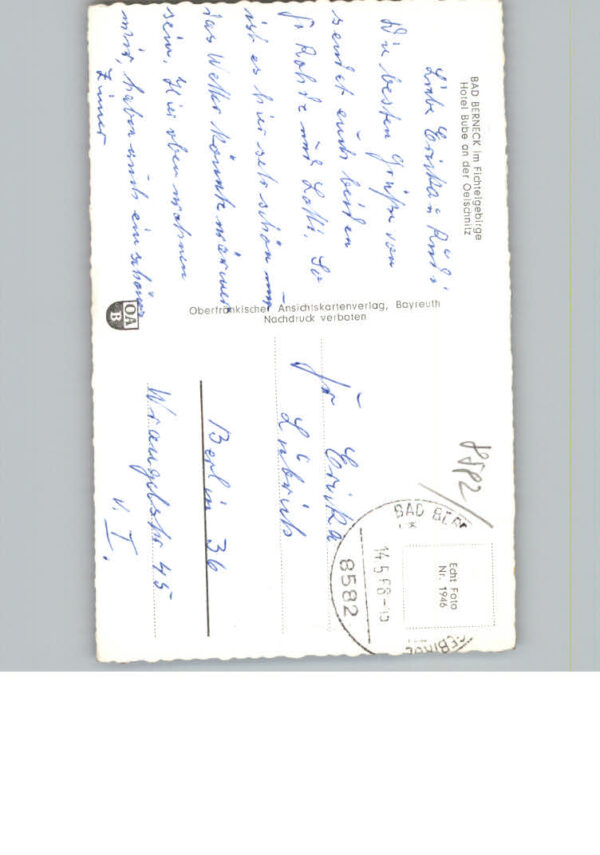 BAD BERNECK im Fichtelgebirge
Hotel Bube an der Oelschnitz
Liebe Erika u.
Die besten Grüße von
sendet euch beiden
Fr Rohde und Lotti. So
ist es hier sehr schön nur
das Wetter könnte wärmer
sein. Hier oben wohnen
wir, haben auch ein schönes
Zimer
Oberfränkischer Ansichtskartenverlag, Bayreuth
Nachdruck verboten
OA
B
8582
BAD BER
14.5.68-
8582
Echt Foto
Nr. 1946
Fr Erika
Lübrich
Berlin 36
Wrangelstr 45
v. I.